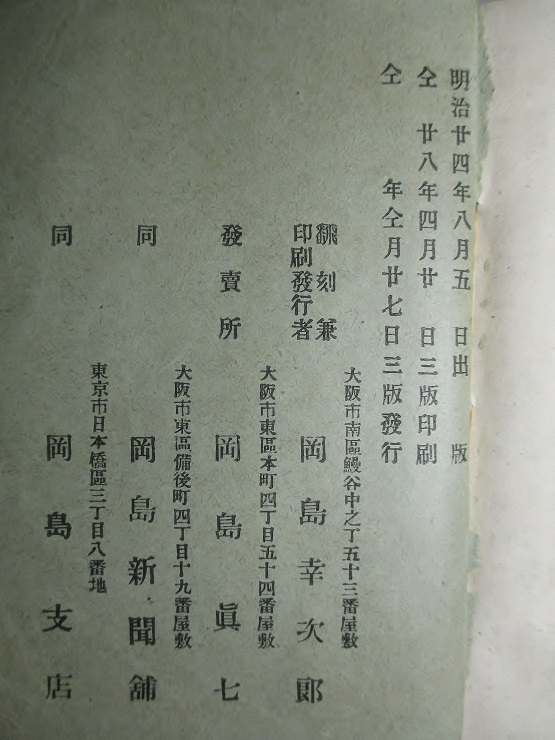 明治廿四年八月五日出版
仝廿八年四月廿日三版印刷
仝年仝月廿七日三版發行
大阪市南區鰻谷中之丁五十三番屋敷
飜刻兼
印刷發行者
岡島幸次郎
大阪市東區本町四丁目五十四番屋敷
發賣所
岡島眞七
大阪市東區備後町四丁目十九番屋敷
同
岡島新聞舗
東京市日本橋區三丁目八番地
同
岡島支店